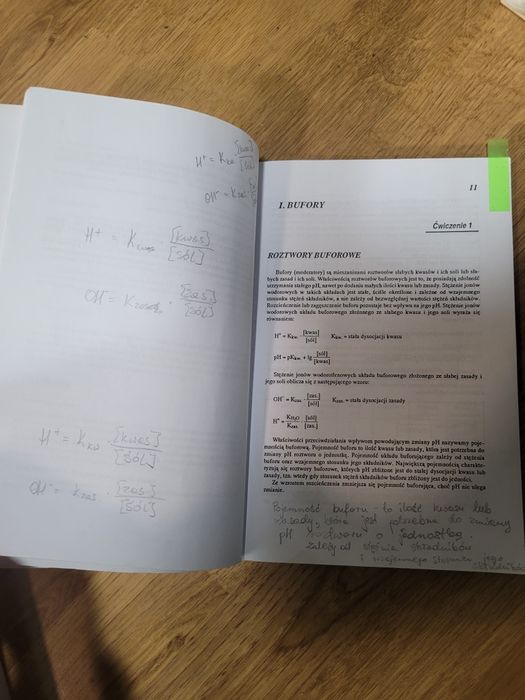 H⁺ = K_kw [kwas]/[sól]
OH⁻ = K_zas
H⁺ = K_kwas · [kwas]/[sól]
OH⁻ = K_zasady · [zas]/[sól]
H⁺ = K_kw · [kwas]/[sól]
OH⁻ = K_zas · [zas]/[sól]
11
I. BUFORY
Ćwiczenie 1
ROZTWORY BUFOROWE
Bufory (moderatory) są mieszaninami roztworów słabych kwasów i ich soli lub sła-
bych zasad i ich soli. Właściwością roztworów buforowych jest to, że posiadają zdolność
utrzymania stałego pH, nawet po dodaniu małych ilości kwasu lub zasady. Stężenie jonów
wodorowych w takich układach jest stałe, ściśle określone i zależne od wzajemnego
stosunku stężeń składników, a nie zależy od bezwzględnej wartości stężeń składników.
Rozcieńczenie lub zagęszczenie bufora pozostaje bez wpływu na jego pH. Stężenie jonów
wodorowych układu buforowego złożonego ze słabego kwasu i jego soli wyraża się
równaniem:
H⁺ = K_kw. [kwas]/[sól] K_kw. = stała dysocjacji kwasu
pH = pK_kw. + lg [sól]/[kwas]
Stężenie jonów wodorotlenowych układu buforowego złożonego ze słabej zasady i
jego soli oblicza się z następującego wzoru:
OH⁻ = K_zas. [zas.]/[sól] K_zas. = stała dysocjacji zasady
H⁺ = K_H₂O/K_zas. · [sól]/[zas.]
Właściwości przeciwdziałania wpływom powodującym zmiany pH nazywamy poje-
mnością buforową. Pojemność buforu to ilość kwasu lub zasady, która jest potrzebna do
zmiany pH roztworu o jednostkę. Pojemność układu buforującego zależy od stężenia
buforu oraz wzajemnego stosunku jego składników. Największą pojemnością charakte-
ryzują się roztwory buforowe, których pH zbliżone jest do stałej dysocjacji kwasu lub
zasady, tzn. wtedy gdy stosunek stężeń składników buforu zbliżony jest do jedności.
Ze wzrostem rozcieńczenia zmniejsza się pojemność buforująca, choć pH nie ulega
zmianie.
Pojemność buforu - to ilość kwasu lub
zasady, która jest potrzebna do zmiany
pH roztworu o jednostkę.
zależy od stężenia składników
i wzajemnego stosunku jego
składników